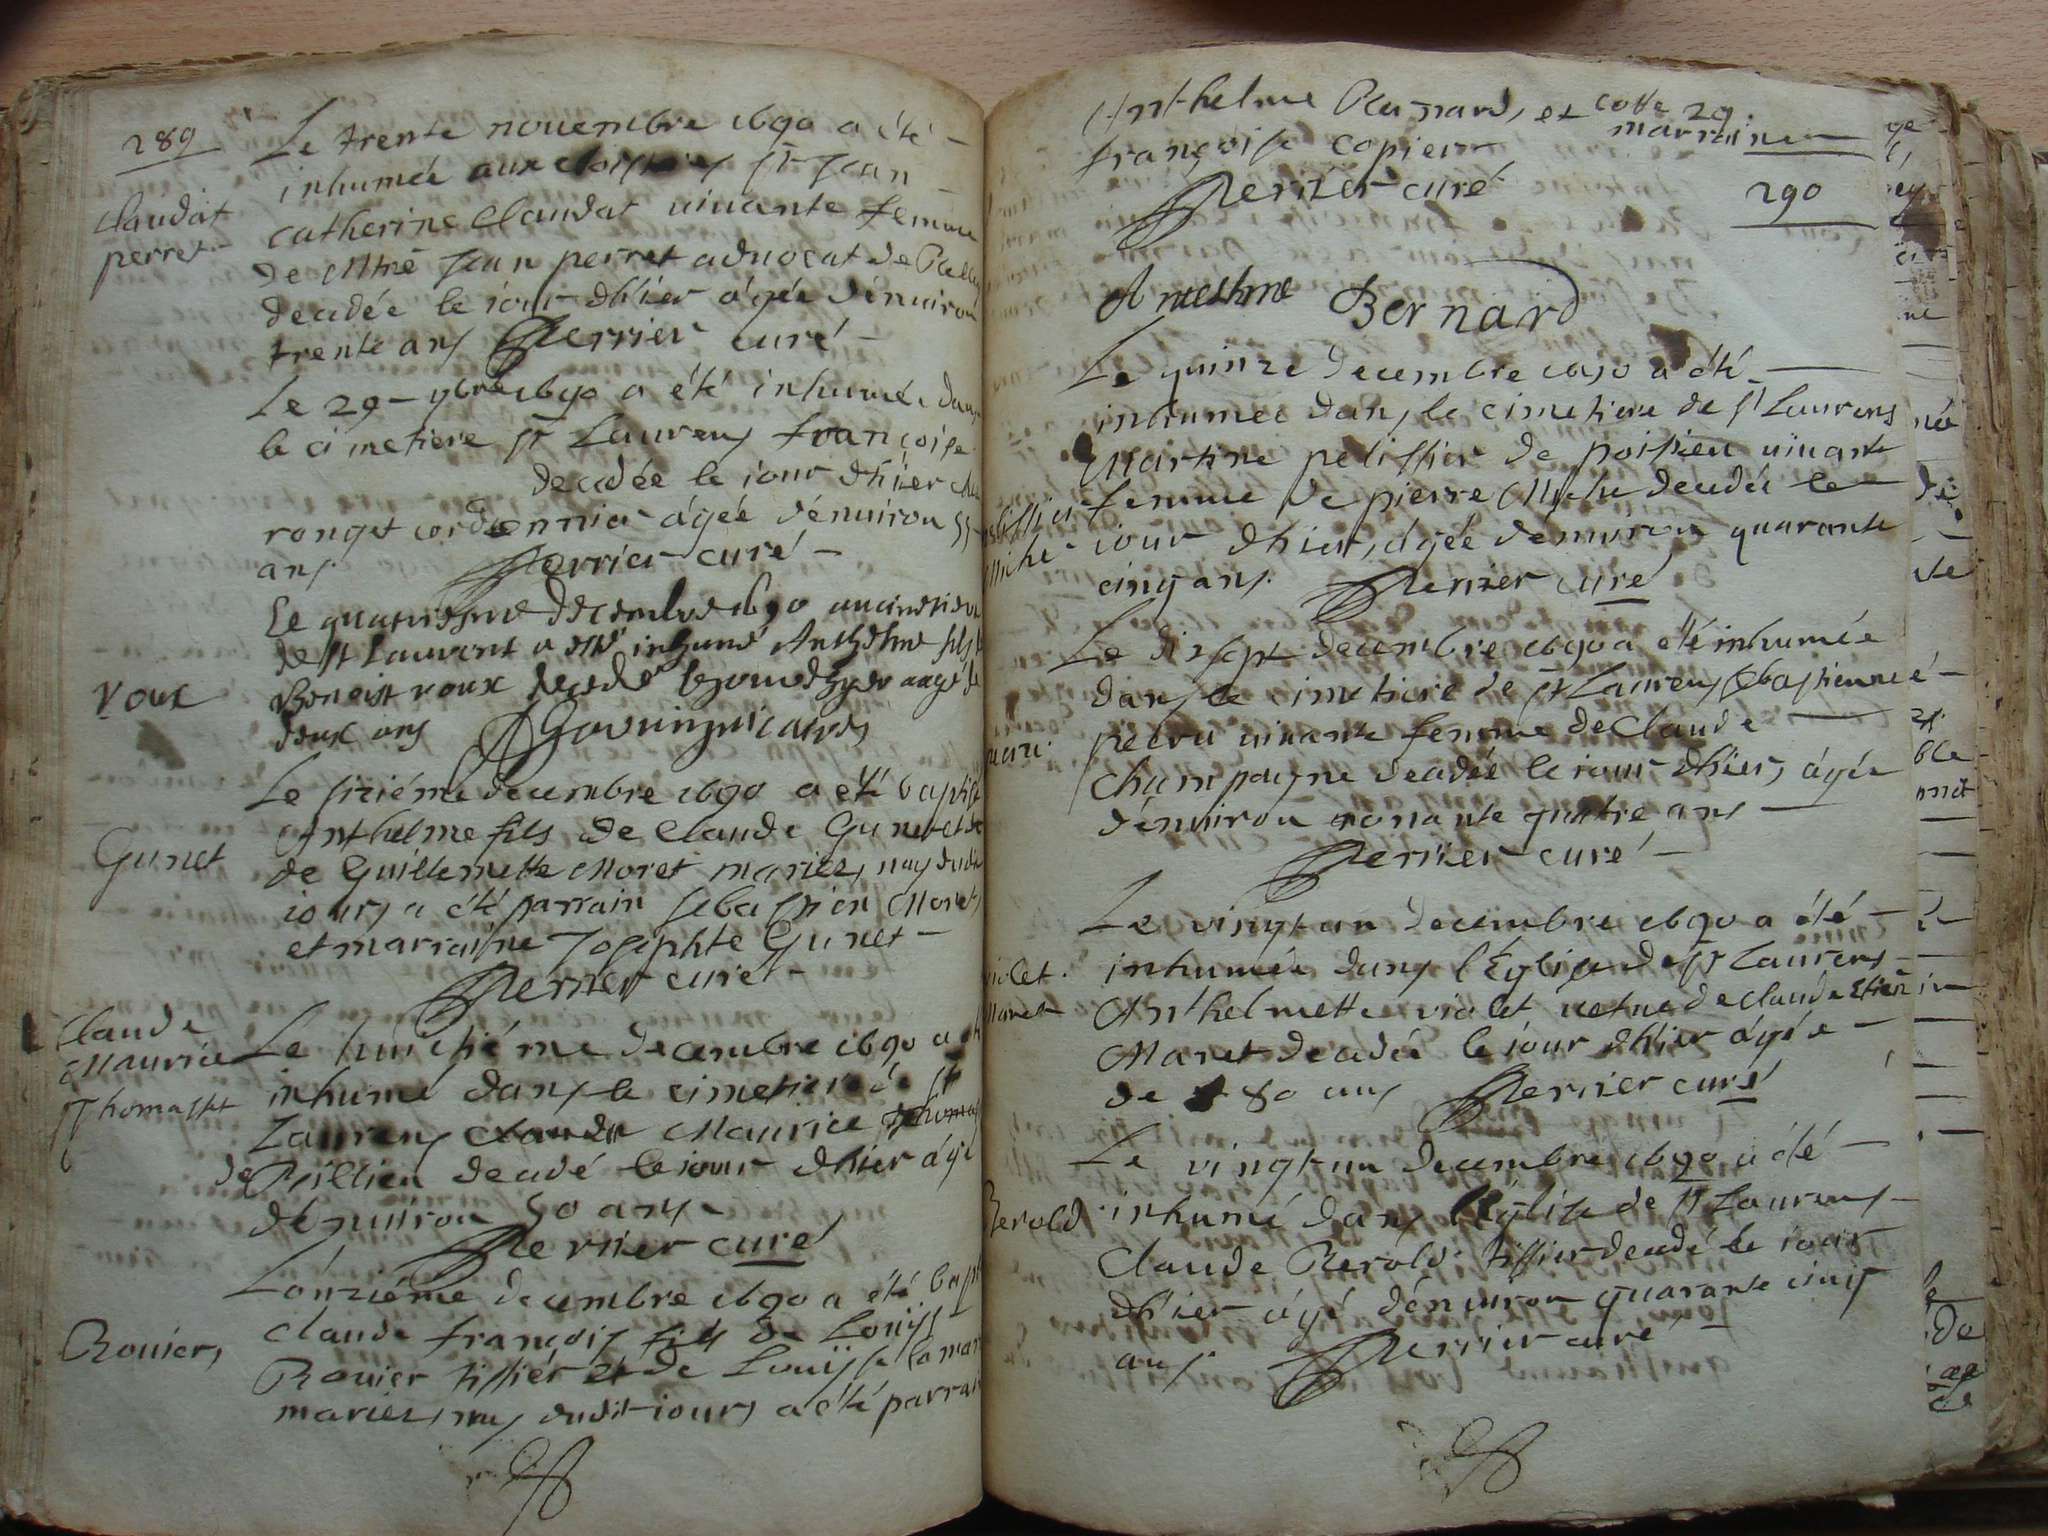 289
Le trente nouembre 1690 a été
inhumée aux cloistres St Jean
Claudat
perret
catherine Claudat uiuante femme
de Mtre Jean perret aduocat de
decedée le iour d'hier agée d'enuiron
trente ans Perrier curé
Le 29 - 9bre 1690 a été inhumée dans
le cimetiere St Laurens françoise
decedée le iour d'hier
ronget cordonnier agée d'enuiron 55
ans. Perrier curé
Le quatriesme decembre 1690 au cimetiere
de St Laurent a esté inhumé Anthelme fils de
roux
Benoist roux decedé le jour d'hyer aagé de
deux ans
Le sixiéme decembre 1690 a été baptisé
Anthelme fils de Claude Gunet et de
Gunet
de Guillemette Moret mariez, nay dudit
iours a été parrain Sebastien Moret
et marraine Josephte Gunet
Perrier curé
Claude
Maurice
Thomasset
Le huictiéme decembre 1690 a été
inhumé dans le cimetiere de St
Laurens Claude Maurice
de Rillieu decedé le iour d'hier agé
d'enuiron 50 ans
Perrier curé
L'onziéme decembre 1690 a été bapt
Rouier,
claude françois fils de Louÿs
Rouier tissier et de Louÿse
mariez, nay dudit iours a été parrain
Anthelme Bernard, et cotte 29.
françoise copier marraine
Perrier curé
290
Anteshme Bernard
Le quinze decembre 1690 a été
inhumée dans le cimetiere de St Laurens
Martine pelissier de poissieu uiuante
pelissier
Miche
femme de pierre Miche decedée le
iour d'hier, agée d'enuiron quarante
cinq ans. Perrier curé
Le dixsept decembre 1690 a été inhumée
dans le cimetiere de St Laurens Sebastienne
uiuante femme de Claude
Champagne decedée le iour d'hier, agée
d'enuiron nonante quatre ans
Perrier curé
Le vingt un decembre 1690 a été
violet.
Maret
inhumée dans l'Eglise de St Laurens
Anthelmette violet uefue de claude
Maret decedée le iour d'hier agée
de 80 ans Perrier curé
Le vingt un decembre 1690 a été
Rerold
inhumé dans l'Eglise de St Laurens
Claude Rerold tissier decedé le iour
d'hier agé d'enuiron quarante cinq
ans. Perrier curé